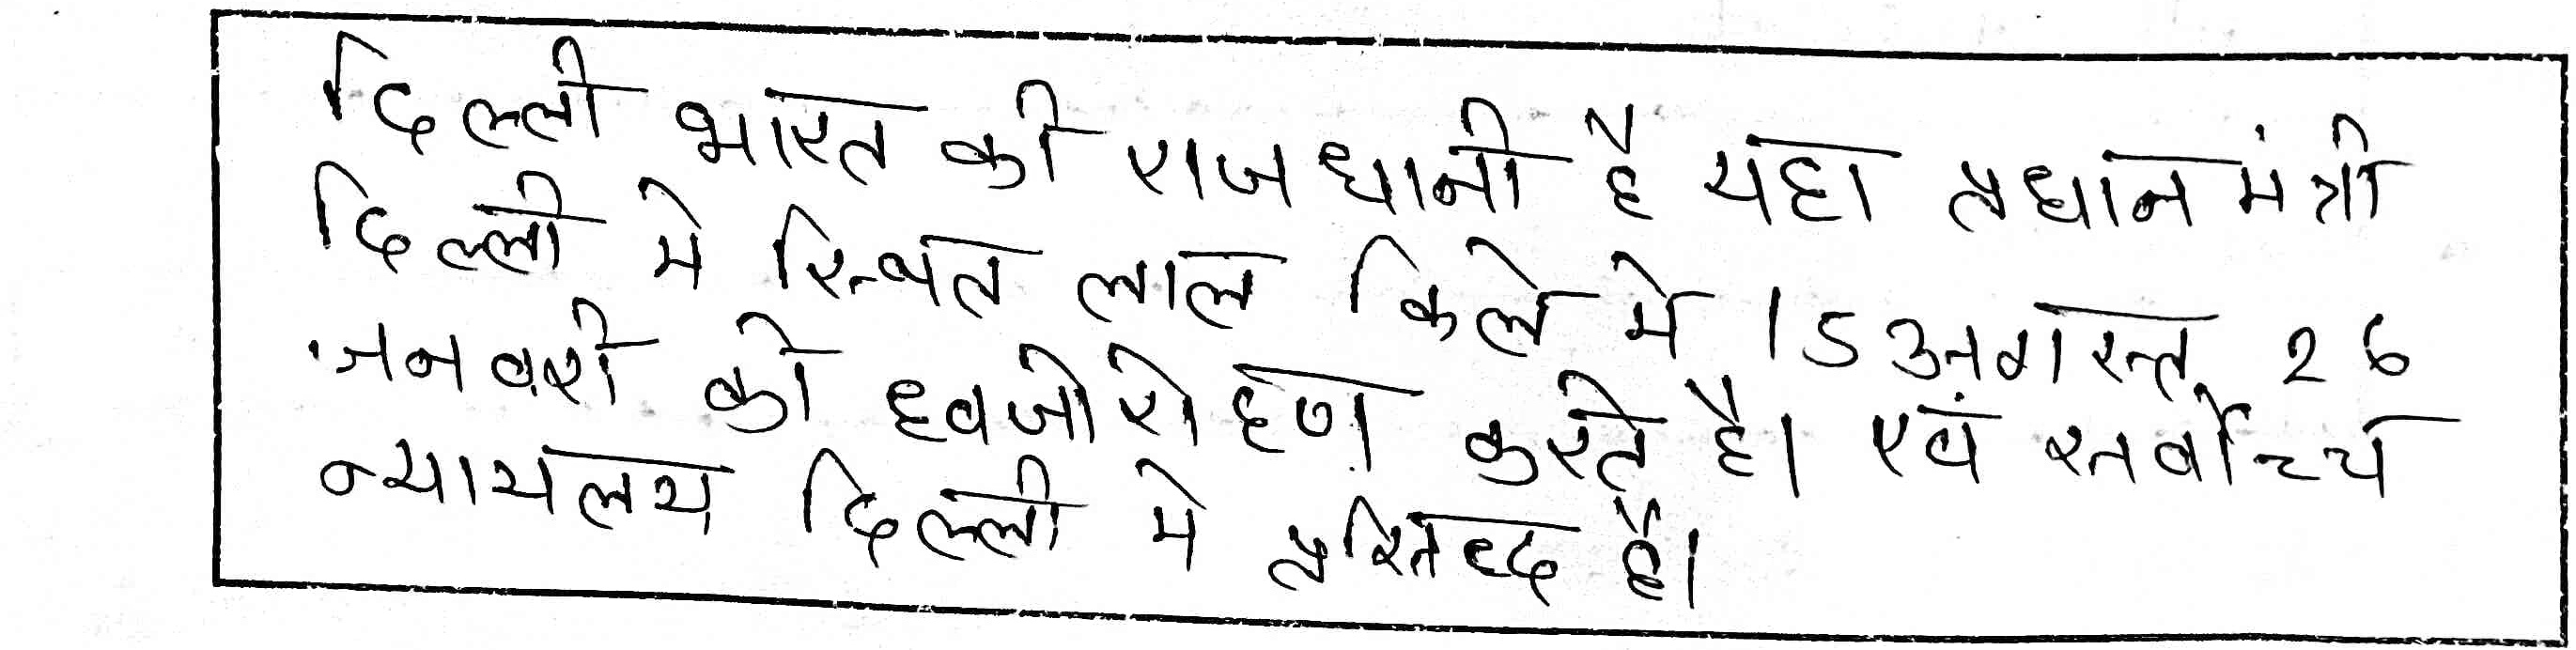 दिल्ली भारत की राजधानी है यहा प्रधान मंत्री
दिल्ली मे स्थित लाल किले मे 15 अगस्त, 26
जनवरी को ध्वजोरोहण करते है। एवं सर्वोच्च
न्यायलय दिल्ली मे प्रसिध्द है।